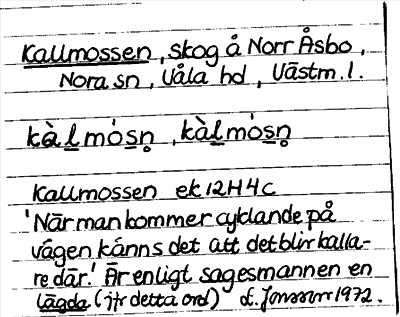 Kallmossen, skog å Norr Åsbo,
Nora sn, Våla hd, Västm. l.
kàl̲mósn̥, kàl̲mòsn̥
Kallmossen ek 12H4c
'När man kommer cyklande på
vägen känns det att det blir kalla-
re där.' Är enligt sagesmannen en
lägda (jfr detta ord) L. Jonsson 1972.